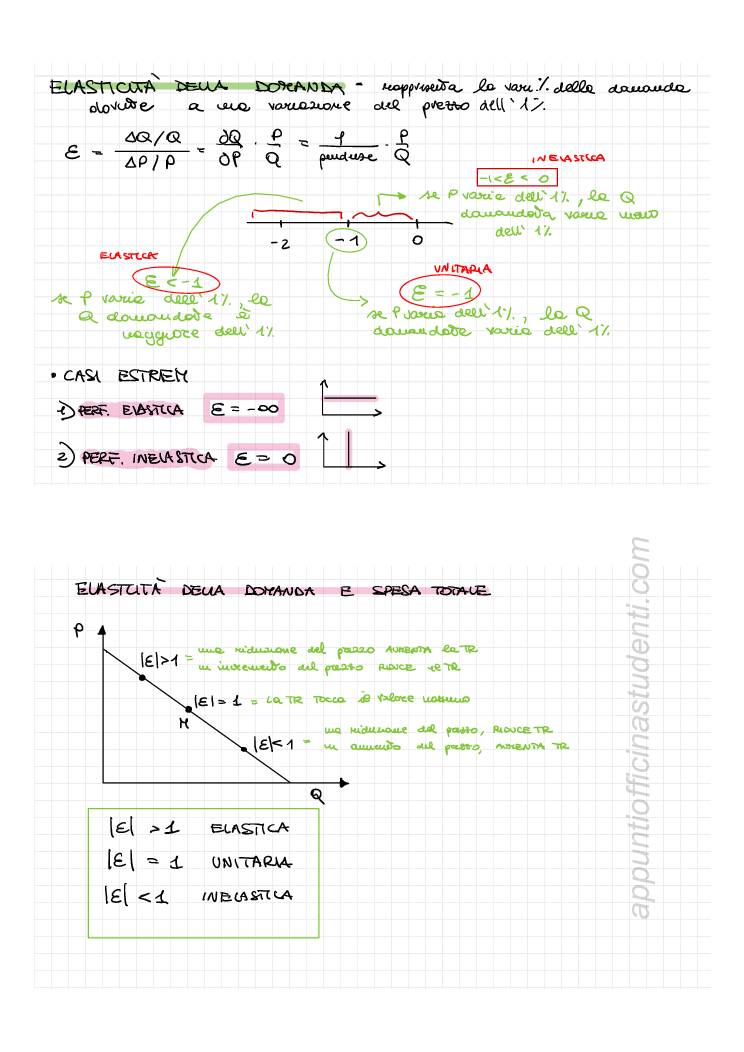 ELASTICITÀ DELLA DOMANDA - rappresenta la vari.% della domanda
dovute a una variazione del prezzo dell'1%.
ε = ΔQ/Q / ΔP/P = ∂Q/∂P · P/Q = 1/penduse · P/Q
INELASTICA
-1<ε<0
se P varia dell'1%, la Q
domandata varia meno
dell'1%
-2 -1 0
ELASTICA
ε<-1
se P varia dell'1%, la
Q domandata è
maggiore dell'1%
UNITARIA
ε=-1
se P varia dell'1%, la Q
domandata varia dell'1%.
• CASI ESTREMI
1) PERF. ELASTICA ε = -∞
2) PERF. INELASTICA ε = 0
ELASTICITÀ DELLA DOMANDA E SPESA TOTALE
P
|ε|>1 = una riduzione del prezzo AUMENTA la TR
un incremento del prezzo RIDUCE le TR
|ε|=1 = LA TR TOCCA il valore massimo
M
|ε|<1 = una riduzione del prezzo, RIDUCE TR
un aumento del prezzo, AUMENTA TR
Q
|ε| >1 ELASTICA
|ε| = 1 UNITARIA
|ε| <1 INELASTICA
appuntiofficinastudenti.com